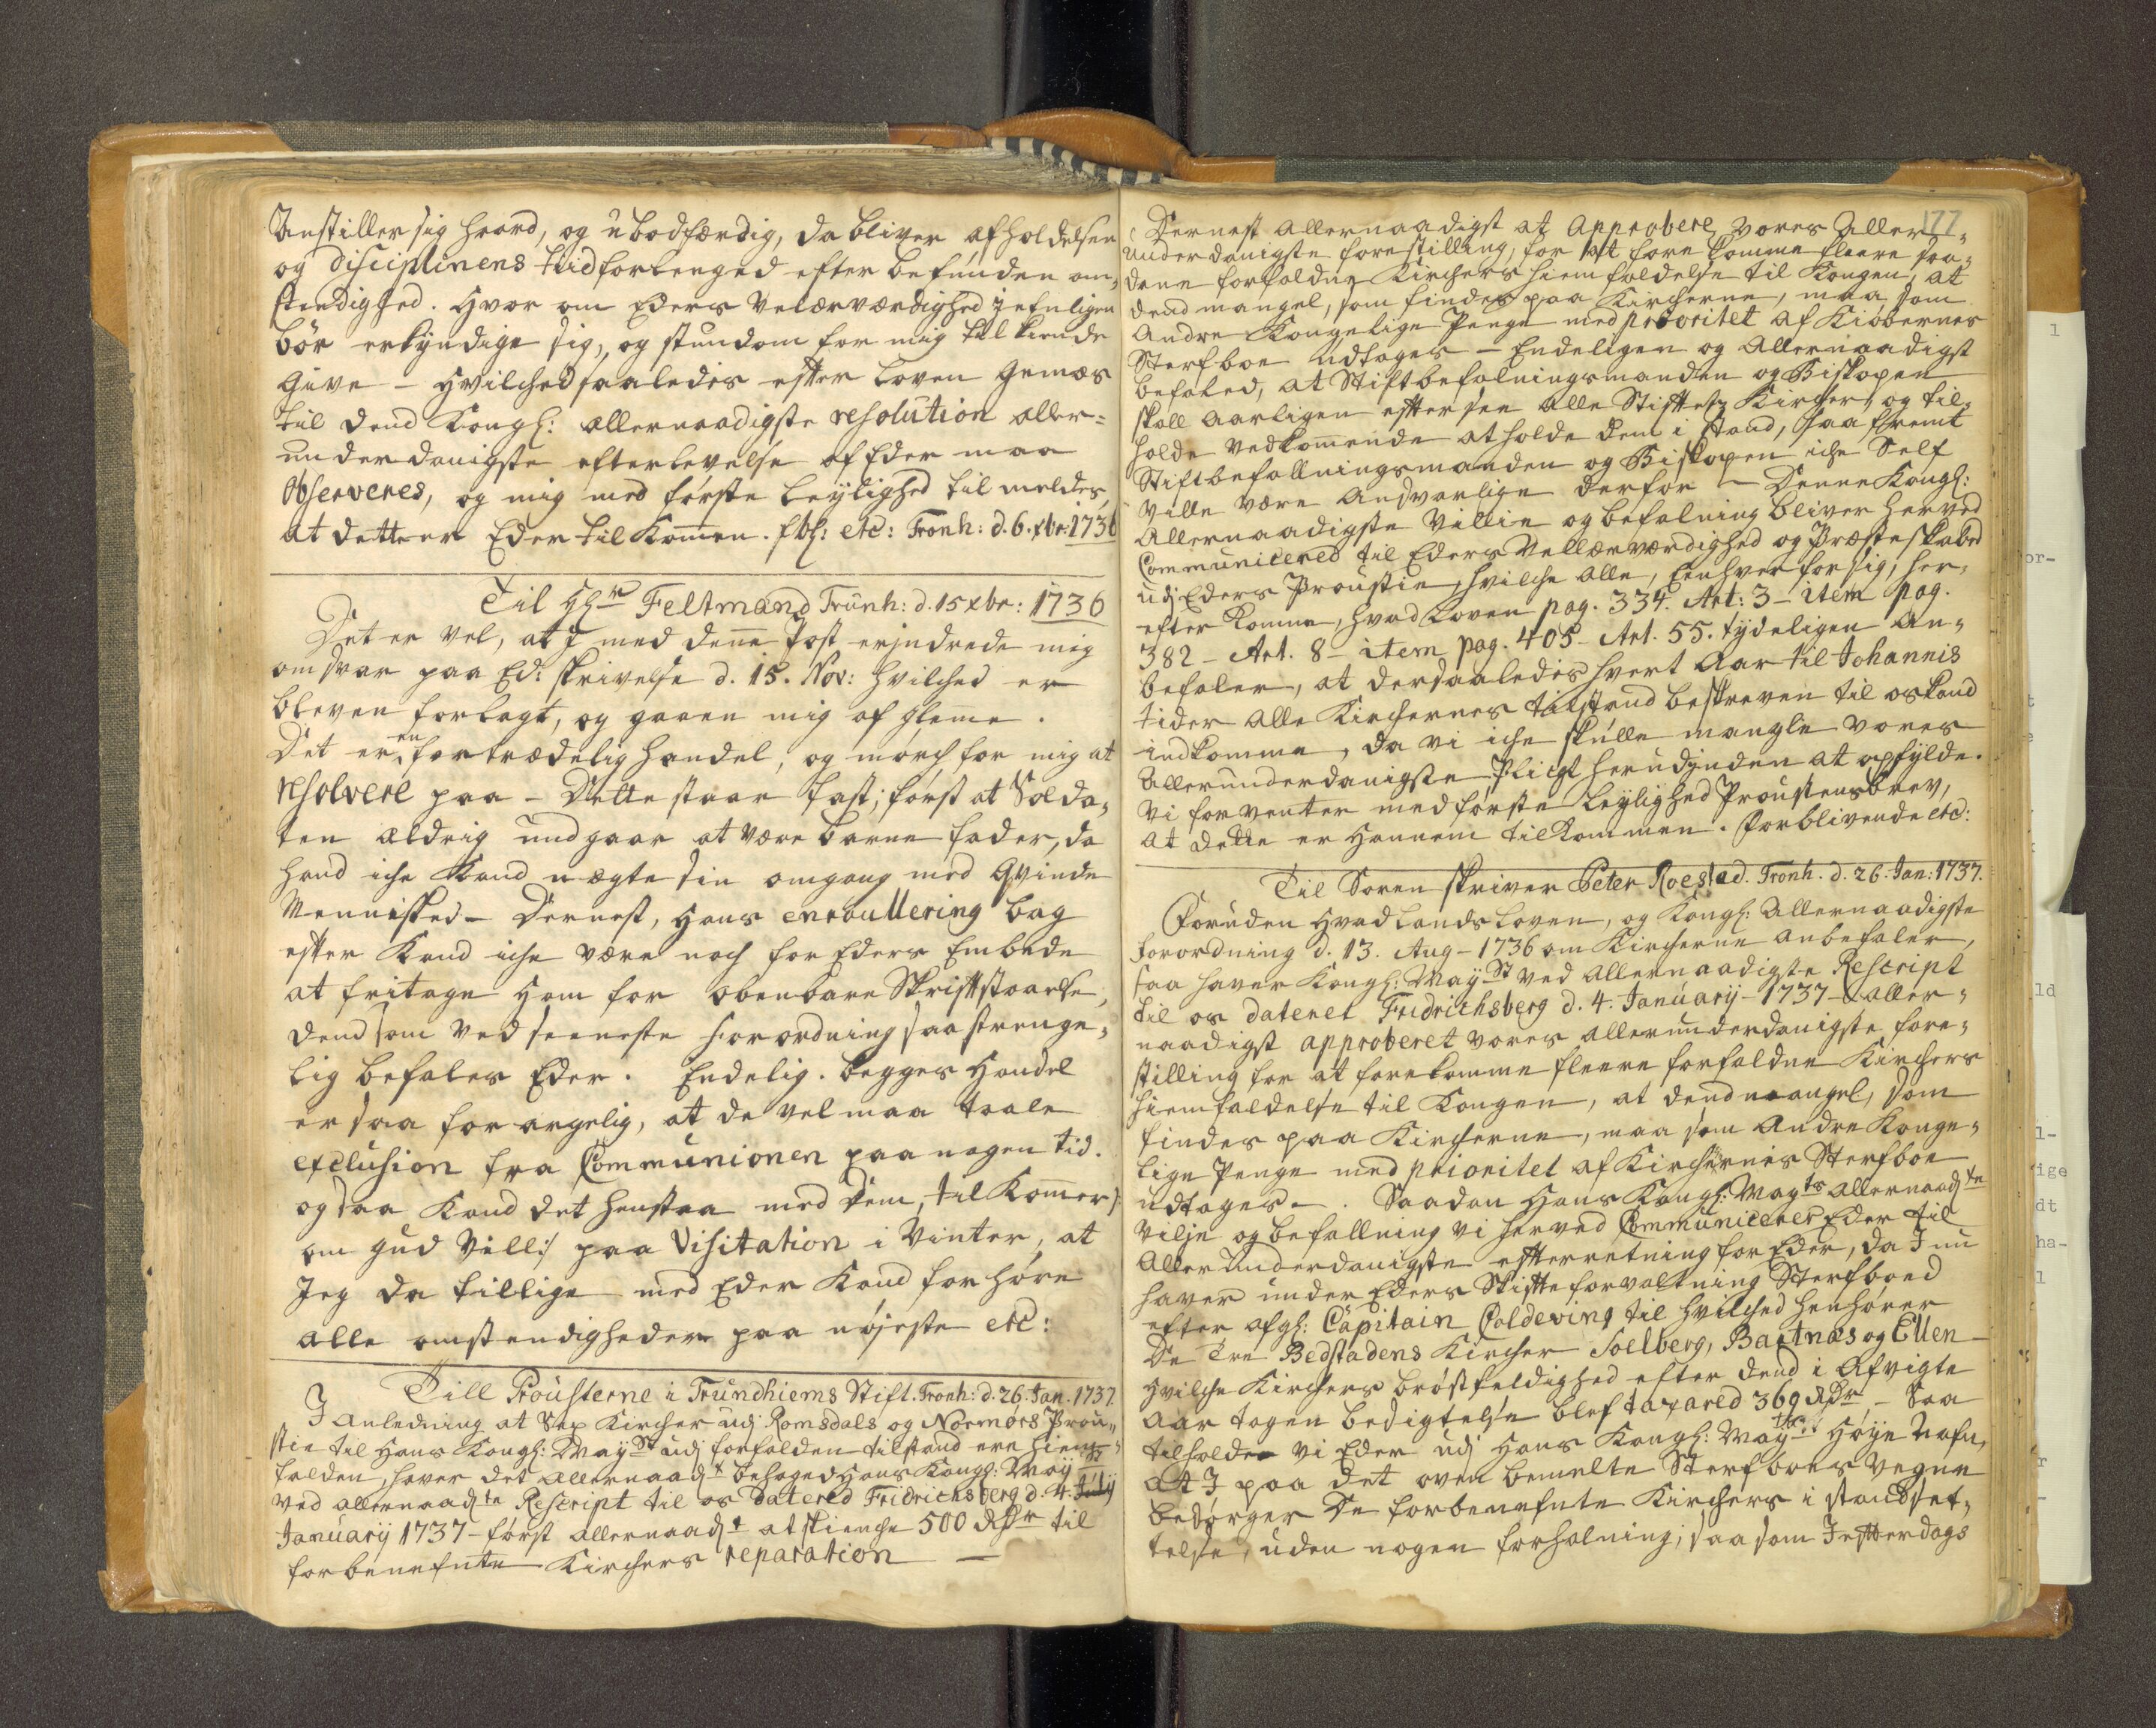 Anstiller sig haard, og ubodfærdig, da bliver afholdelsen
og disciplinens tiid forlenged efter befunden om„
stendighed. Hvor om Eders Velærværdighed jefnligen
bör erkyndige sig, og stundom for mig tilkiende
give – Hvilched saaledis efter loven gemæs
til dend Kongl: allernaadigste resolution aller=
underdanigste efterlevelse af Eder maa
Observeres, og mig med förste leylighed til meldes,
at dette er Eder til Kommen. fbl: etc: Tronh: d. 6. xbr: 1736
Til Hl Feltmand Trunh: d. 15 xbr: 1736
Det er vel, at I med denne Post erindrede mig
om svar paa Ed: skrivelse d. 15. Nov: hvilched er
bleven forlagt, og gaaen mig af glemme.
Det er en fortrædelig handel, og mörch for mig at
resolvere paa – Dette staar fast; först at Solda„
ten aldrig undgaar at være barne fader, da
hand iche kand nægte sin omgang med qvinde
Mennisked – Dernest, hans enroullering bag
efter kand iche være noch for Eders Embede
at fritage ham for obenbare Skriftstaaelse,
dend som ved seeneste forordning saa strenge„
lig befales Eder. Endelig. begges handel
er saa forargelig, at de vel maa taale
exclusion fra Communionen paa nogen tid.
og saa kand det henstaa med dem, til kommer/:
om gud vill:/ paa Visitation i Vinter, at
Jeg da tillige med Eder kand forhöre
alle omstendigheder paa nöjeste etc:
Till Prousterne i Trundhiems Stift. Tronh: d. 26. Jan. 1737.
I anledning at Sex Kircher udj Romsdals og Normörs Prou„
stie til Hans Kongl: Mayst udj forfalden tilstand ere hiem„
falden, haver det allernaadt behaged Hans Kongl: Mayst
ved allernaadte Rescript til os datered Fridrichsberg d. 4. July
January 1737 – först allernaadt at skienche 500 Rdr til
forbenefnte Kirchers reparation –
177
Dernest allernaadigst at approbere vores aller„
underdanigste forestilling, for at fore komme fleere saa„
dane forfaldne Kirchers hiemfaldelse til Kongen, at
dend mangel, som findes paa Kircherne, maa som
andre Kongelige Penge med prioritet af Kiöbernes
Sterfboe udtages – Endeligen og Allernaadigst
befaled, at Stiftbefalningsmanden og Biskopen
skall aarligen eftersee alle Stiftets Kircher, og til„
holde vedkommende at holde dem i stand, saa fremt
Stiftbefallningsmanden og Biskopen iche Self
ville være andvarlige derfor – Denne Kongl:
Allernaadigste Villie og befalning bliver herved
Communicered til Eders Vellærværdighed og Præsteskabed
udj Eders Proustie, hvilche alle, Eenhver for sig, her„
efter komme, hvad loven pag. 334. Art: 3 – item pag.
382 – Art. 8 – item pag. 405 – Art. 55. tydeligen an„
befaler, at der saaledis hvert Aar til Johannis
tider alle Kirchernes tilstand beskreven til os kand
indkomme, da vi iche skulle mangle vores
allerunderdanigste Pligt herudjnden at opfylde.
Vi forventer med förste leylighed Proustens brev,
at dette er Hannem tilkommen. Forblivende etc:
Til Soren skriver Peter Roestad. Tronh. d. 26. Jan: 1737.
Foruden hvad lands loven, og Kongl: Allernaadigste
forordning d. 13. Aug – 1736 om Kircherne anbefaler,
saa haver Kongl: Mayst ved allernaadigste Rescript
til os dateret Fridrichsberg d. 4. January – 1737 – aller„
naadigst approberet vores allerunderdanigste fore„
stilling for at forekomme fleere forfaldne Kirchers
hiemfaldelse til Kongen, at dend mangel, som
findes paa Kircherne, maa som andre Konge„
lige Penge med prioritet af Kirchernes Sterfboe
udtages –. Saadan Hans Kongl: Mayts allernaadte
Vilje og befallning vi herved Communicerer Eder til
allerunderdanigste efterretning for Eder, da I nu
haver under Eders Skifteforvaltning Sterfboed
efter afgl: Capitain Coldeving til hvilched henhörer
De Tre Bedstadens Kircher Soelberg, Bartnæs og Ellen –
Hvilche Kirchers bröstfeldighed efter dend i Afvigte
Aar tagen besigtelse blef taxared 369 Rdr, – Saa
tilholder vi Eder udj Hans Kongl: Mayts Höye Nafn,
at I paa det oven bemelte Sterfboes Vegne
besörger De forbenefnte Kirchers i standset„
telse, uden nogen forhalning, saasom I efterdags